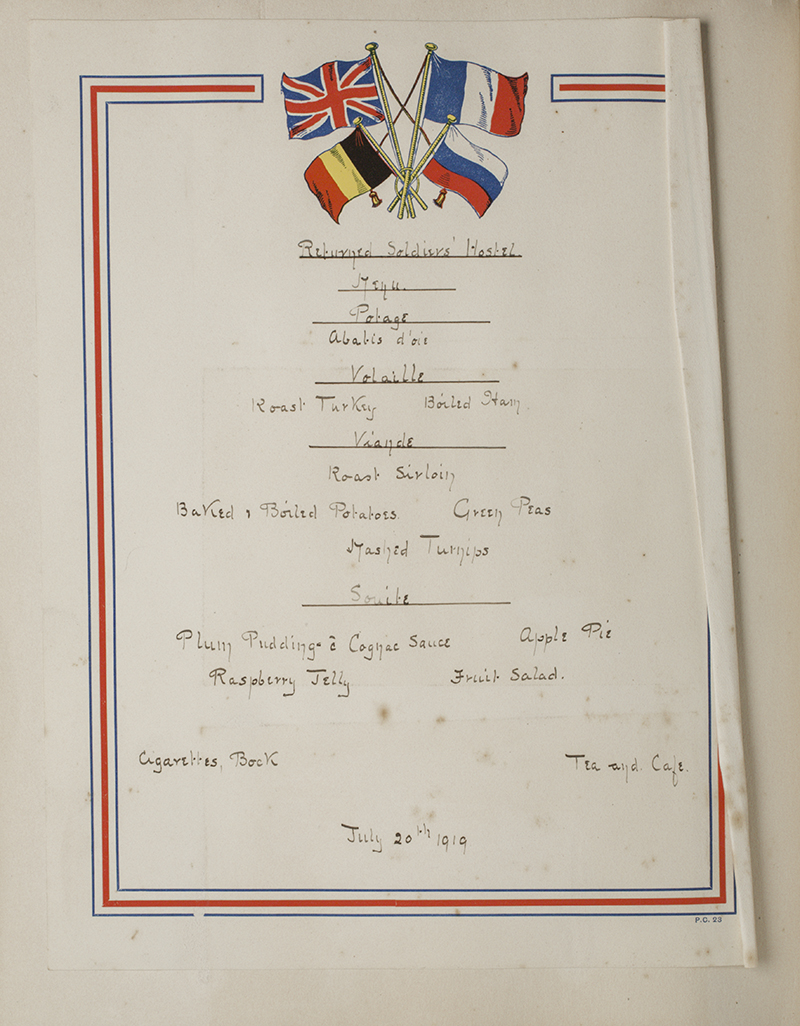 Returned Soldiers' Hostel
Menu.
Potage
Abatis d'oie
Volaille
Roast Turkey Boiled Ham.
Viande
Roast Sirloin
Baked & Boiled Potatoes. Green Peas
Mashed Turnips
Souite
Plum Pudding - c̄ Cognac Sauce Apple Pie
Raspberry Jelly Fruit Salad.
Cigarettes, Bock Tea and. Cafe.
July 20th 1919
P.C. 23